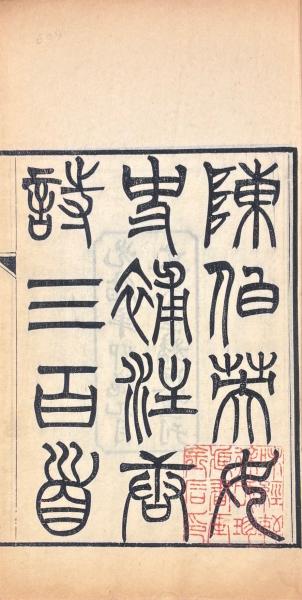 陳伯英女
史補注唐
詩三百首